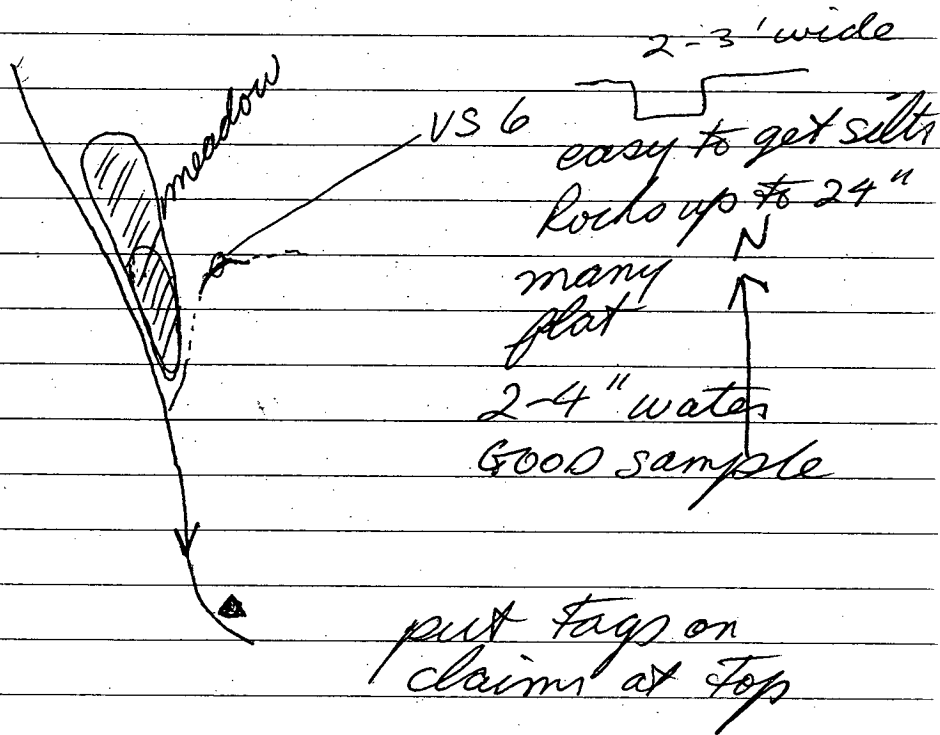 2-3' wide
meadow
VS 6
easy to get silts
Rocks up to 24"
N
many
flat
2-4" water
GOOD sample
put Tags on
claims at Top